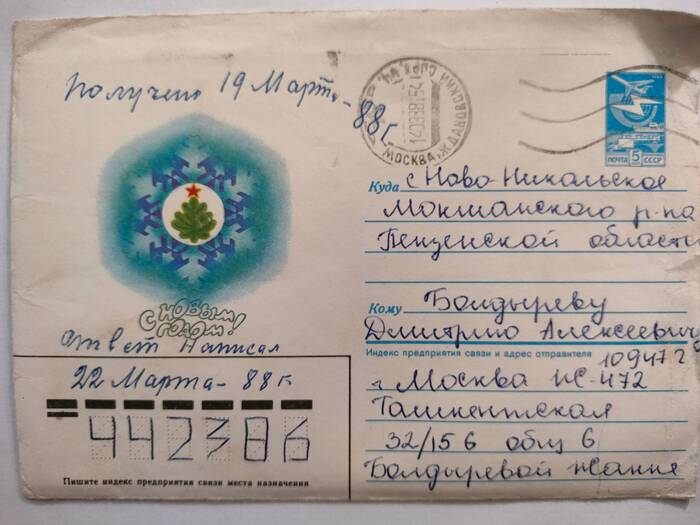 Получено 19 Марта-
88 г
МОСКВА, ЖДАНОВСКИЙ
ПОЧТА 5 СССР
Куда с Ново-Никольское
Мокшанского р-на
Пензенской области
С НОВЫМ
ГОДОМ!
Кому Болдыреву
Дмитрию Алексеевичу
Ответ написал
22 Марта- 88 г
Индекс предприятия связи и адрес отправителя
109472
г Москва Ж-472
Ташкентская
32/156 общ 6
Болдыревой Жанне
442386
Пишите индекс предприятия связи места назначения